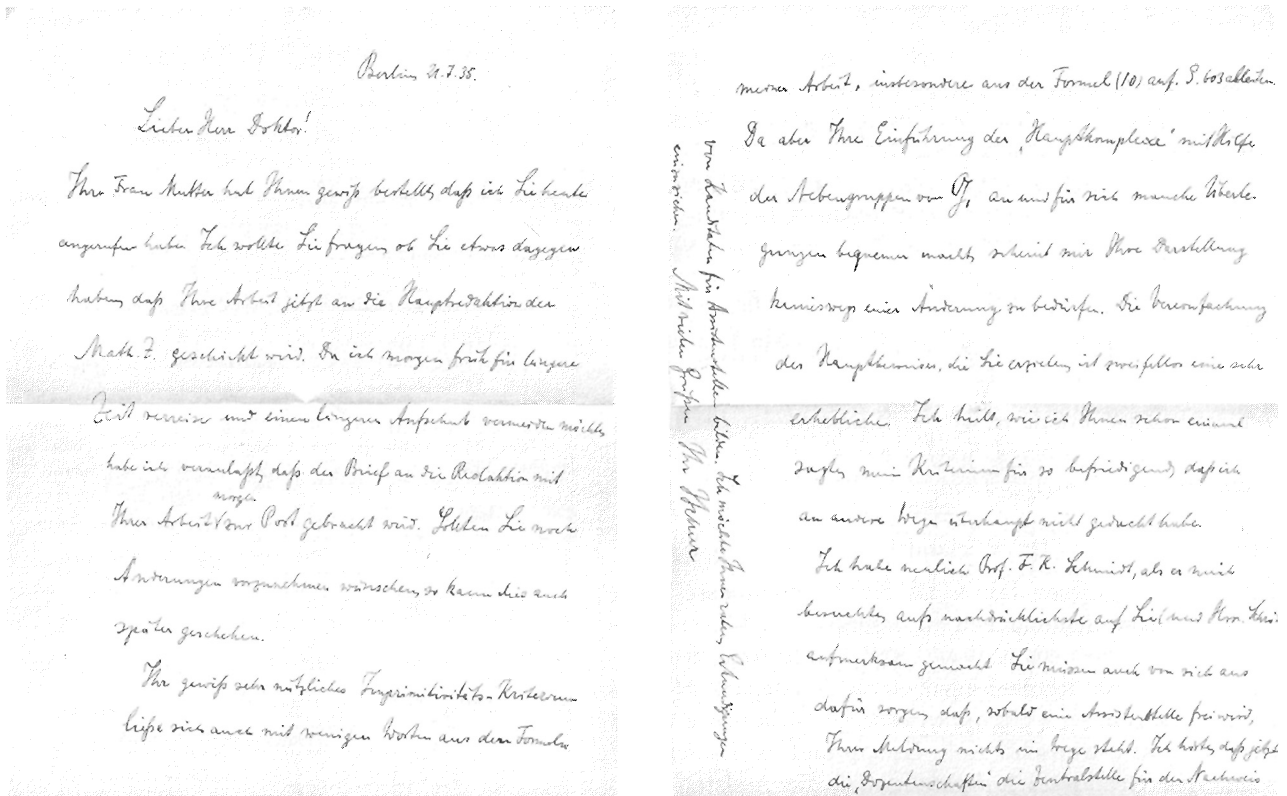 Berlin 21.7.35.
Lieber Herr Doktor!
Ihre Frau Mutter hat Ihnen gewiß bestellt, daß ich Sie heute
angerufen habe. Ich wollte Sie fragen, ob Sie etwas dagegen
haben, daß Ihre Arbeit jetzt an die Hauptredaktion der
Math. Z. geschickt wird. Da ich morgen früh für längere
Zeit verreise und einen längeren Aufschub vermeiden möchte,
habe ich veranlaßt, daß der Brief an die Redaktion mit
Ihrer Arbeit morgen zur Post gebracht wird. Sollten Sie noch
Änderungen vorzunehmen wünschen, so kann dies auch
später geschehen.
Ihr gewiß sehr nützliches Imprimitivitäts-Kriterium
ließe sich auch mit wenigen Worten aus den Formeln
meiner Arbeit, insbesondere aus der Formel (10) auf S. 603 ableiten.
Da aber Ihre Einführung der „Hauptkomplexe" mit Hilfe
der Nebengruppen von G, an und für sich manche Überle-
gungen bequemer macht, scheint mir Ihre Darstellung
keineswegs einer Änderung zu bedürfen. Die Vereinfachung
des Hauptbeweises, die Sie erzielen, ist zweifellos eine sehr
erhebliche. Ich hielt, wie ich Ihnen schon einmal
sagte, mein Kriterium für so befriedigend, daß ich
an andere Wege überhaupt nicht gedacht habe.
Ich habe neulich Prof. F. K. Schmidt, als er mich
besuchte, aufs nachdrücklichste auf Sie (und Hrn.
aufmerksam gemacht. Sie müssen auch von sich aus
dafür sorgen, daß, sobald eine Assistentstelle frei wird,
Ihrer Meldung nichts im Wege steht. Ich hörte, daß jetzt
die „Dozentenschaften" die Zentralstelle für den Nachweis
von Kandidaten für Assistentstellen bilden. Ich möchte Ihnen raten, Erkundigungen
einzuziehen. Mit vielen Grüßen Ihr Schur